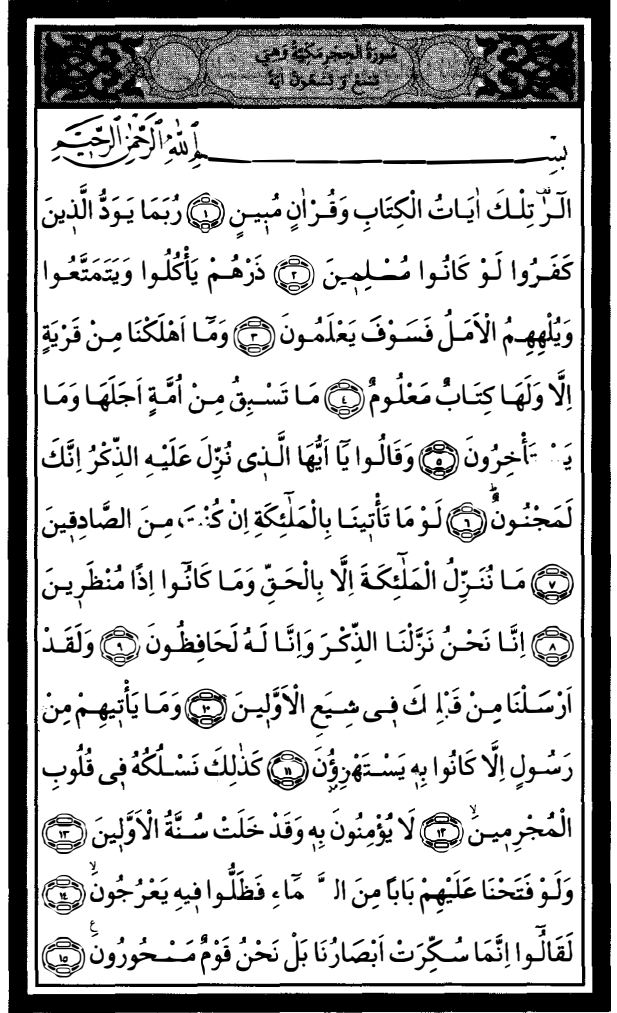 سُورَةُ الْحِجْرِ مَكِّيَّةٌ وَهِيَ
تِسْعٌ وَ تِسْعُونَ اٰيَةً
بِسْمِ اللّٰهِ الرَّحْمٰنِ الرَّحٖيمِ
الٓرٰ تِلْكَ اٰيَاتُ الْكِتَابِ وَقُرْاٰنٍ مُبٖينٍ ﴿١﴾ رُبَمَا يَوَدُّ الَّذٖينَ
كَفَرُوا لَوْ كَانُوا مُسْلِمٖينَ ﴿٢﴾ ذَرْهُمْ يَأْكُلُوا وَيَتَمَتَّعُوا
وَيُلْهِهِمُ الْاَمَلُ فَسَوْفَ يَعْلَمُونَ ﴿٣﴾ وَمَٓا اَهْلَكْنَا مِنْ قَرْيَةٍ
اِلَّا وَلَهَا كِتَابٌ مَعْلُومٌ ﴿٤﴾ مَا تَسْبِقُ مِنْ اُمَّةٍ اَجَلَهَا وَمَا
يَسْتَأْخِرُونَ ﴿٥﴾ وَقَالُوا يَٓا اَيُّهَا الَّذٖى نُزِّلَ عَلَيْهِ الذِّكْرُ اِنَّكَ
لَمَجْنُونٌ ﴿٦﴾ لَوْ مَا تَأْتٖينَا بِالْمَلٰٓئِكَةِ اِنْ كُنْتَ مِنَ الصَّادِقٖينَ
﴿٧﴾ مَا نُنَزِّلُ الْمَلٰٓئِكَةَ اِلَّا بِالْحَقِّ وَمَا كَانُٓوا اِذًا مُنْظَرٖينَ
﴿٨﴾ اِنَّا نَحْنُ نَزَّلْنَا الذِّكْرَ وَاِنَّا لَهُ لَحَافِظُونَ ﴿٩﴾ وَلَقَدْ
اَرْسَلْنَا مِنْ قَبْلِكَ فٖى شِيَعِ الْاَوَّلٖينَ ﴿١٠﴾ وَمَا يَأْتٖيهِمْ مِنْ
رَسُولٍ اِلَّا كَانُوا بِهٖ يَسْتَهْزِؤُ۫نَ ﴿١١﴾ كَذٰلِكَ نَسْلُكُهُ فٖى قُلُوبِ
الْمُجْرِمٖينَۙ ﴿١٢﴾ لَا يُؤْمِنُونَ بِهٖ وَقَدْ خَلَتْ سُنَّةُ الْاَوَّلٖينَ ﴿١٣﴾
وَلَوْ فَتَحْنَا عَلَيْهِمْ بَابًا مِنَ السَّمَٓاءِ فَظَلُّوا فٖيهِ يَعْرُجُونَۙ ﴿١٤﴾
لَقَالُٓوا اِنَّمَا سُكِّرَتْ اَبْصَارُنَا بَلْ نَحْنُ قَوْمٌ مَسْحُورُونَ ﴿١٥﴾